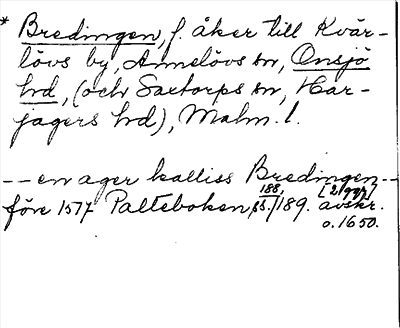 * Bredingen, f. åker till Kvär-
lövs by, Annelövs sn, Onsjö
hd, (och Saxtorps sn, Har-
jagers hd), Malm. l.
-- en ager kalliss Bredingen --
188, [2 ggr]
före 1577 Palteboken, s. /189. avskr.
o. 1650.